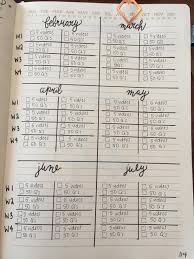 february march
W1 5 videos 5 videos 5 videos 5 videos
50 Q's 50 Q's 50 Q's 50 Q's
W2 5 videos 5 videos 5 videos 5 videos
50 Q's 50 Q's 50 Q's 50 Q's
W3 5 videos 5 videos 5 videos 5 videos
50 Q's 50 Q's 50 Q's 50 Q's
W4 5 videos 5 videos 5 videos 5 videos
50 Q's 50 Q's 50 Q's 50 Q's
april may
W1 5 videos 5 videos 5 videos 5 videos
50 Q's 50 Q's 50 Q's 50 Q's
W2 5 videos 5 videos 5 videos 5 videos
50 Q's 50 Q's 50 Q's 50 Q's
W3 5 videos 5 videos 5 videos 5 videos
50 Q's 50 Q's 50 Q's 50 Q's
W4 5 videos 5 videos 5 videos 5 videos
50 Q's 50 Q's 50 Q's 50 Q's
june july
W1 5 videos 5 videos 5 videos 5 videos
50 Q's 50 Q's 50 Q's 50 Q's
W2 5 videos 5 videos 5 videos 5 videos
50 Q's 50 Q's 50 Q's 50 Q's
W3 5 videos 5 videos 5 videos 5 videos
50 Q's 50 Q's 50 Q's 50 Q's
W4 5 videos 5 videos 5 videos 5 videos
50 Q's 50 Q's 50 Q's 50 Q's